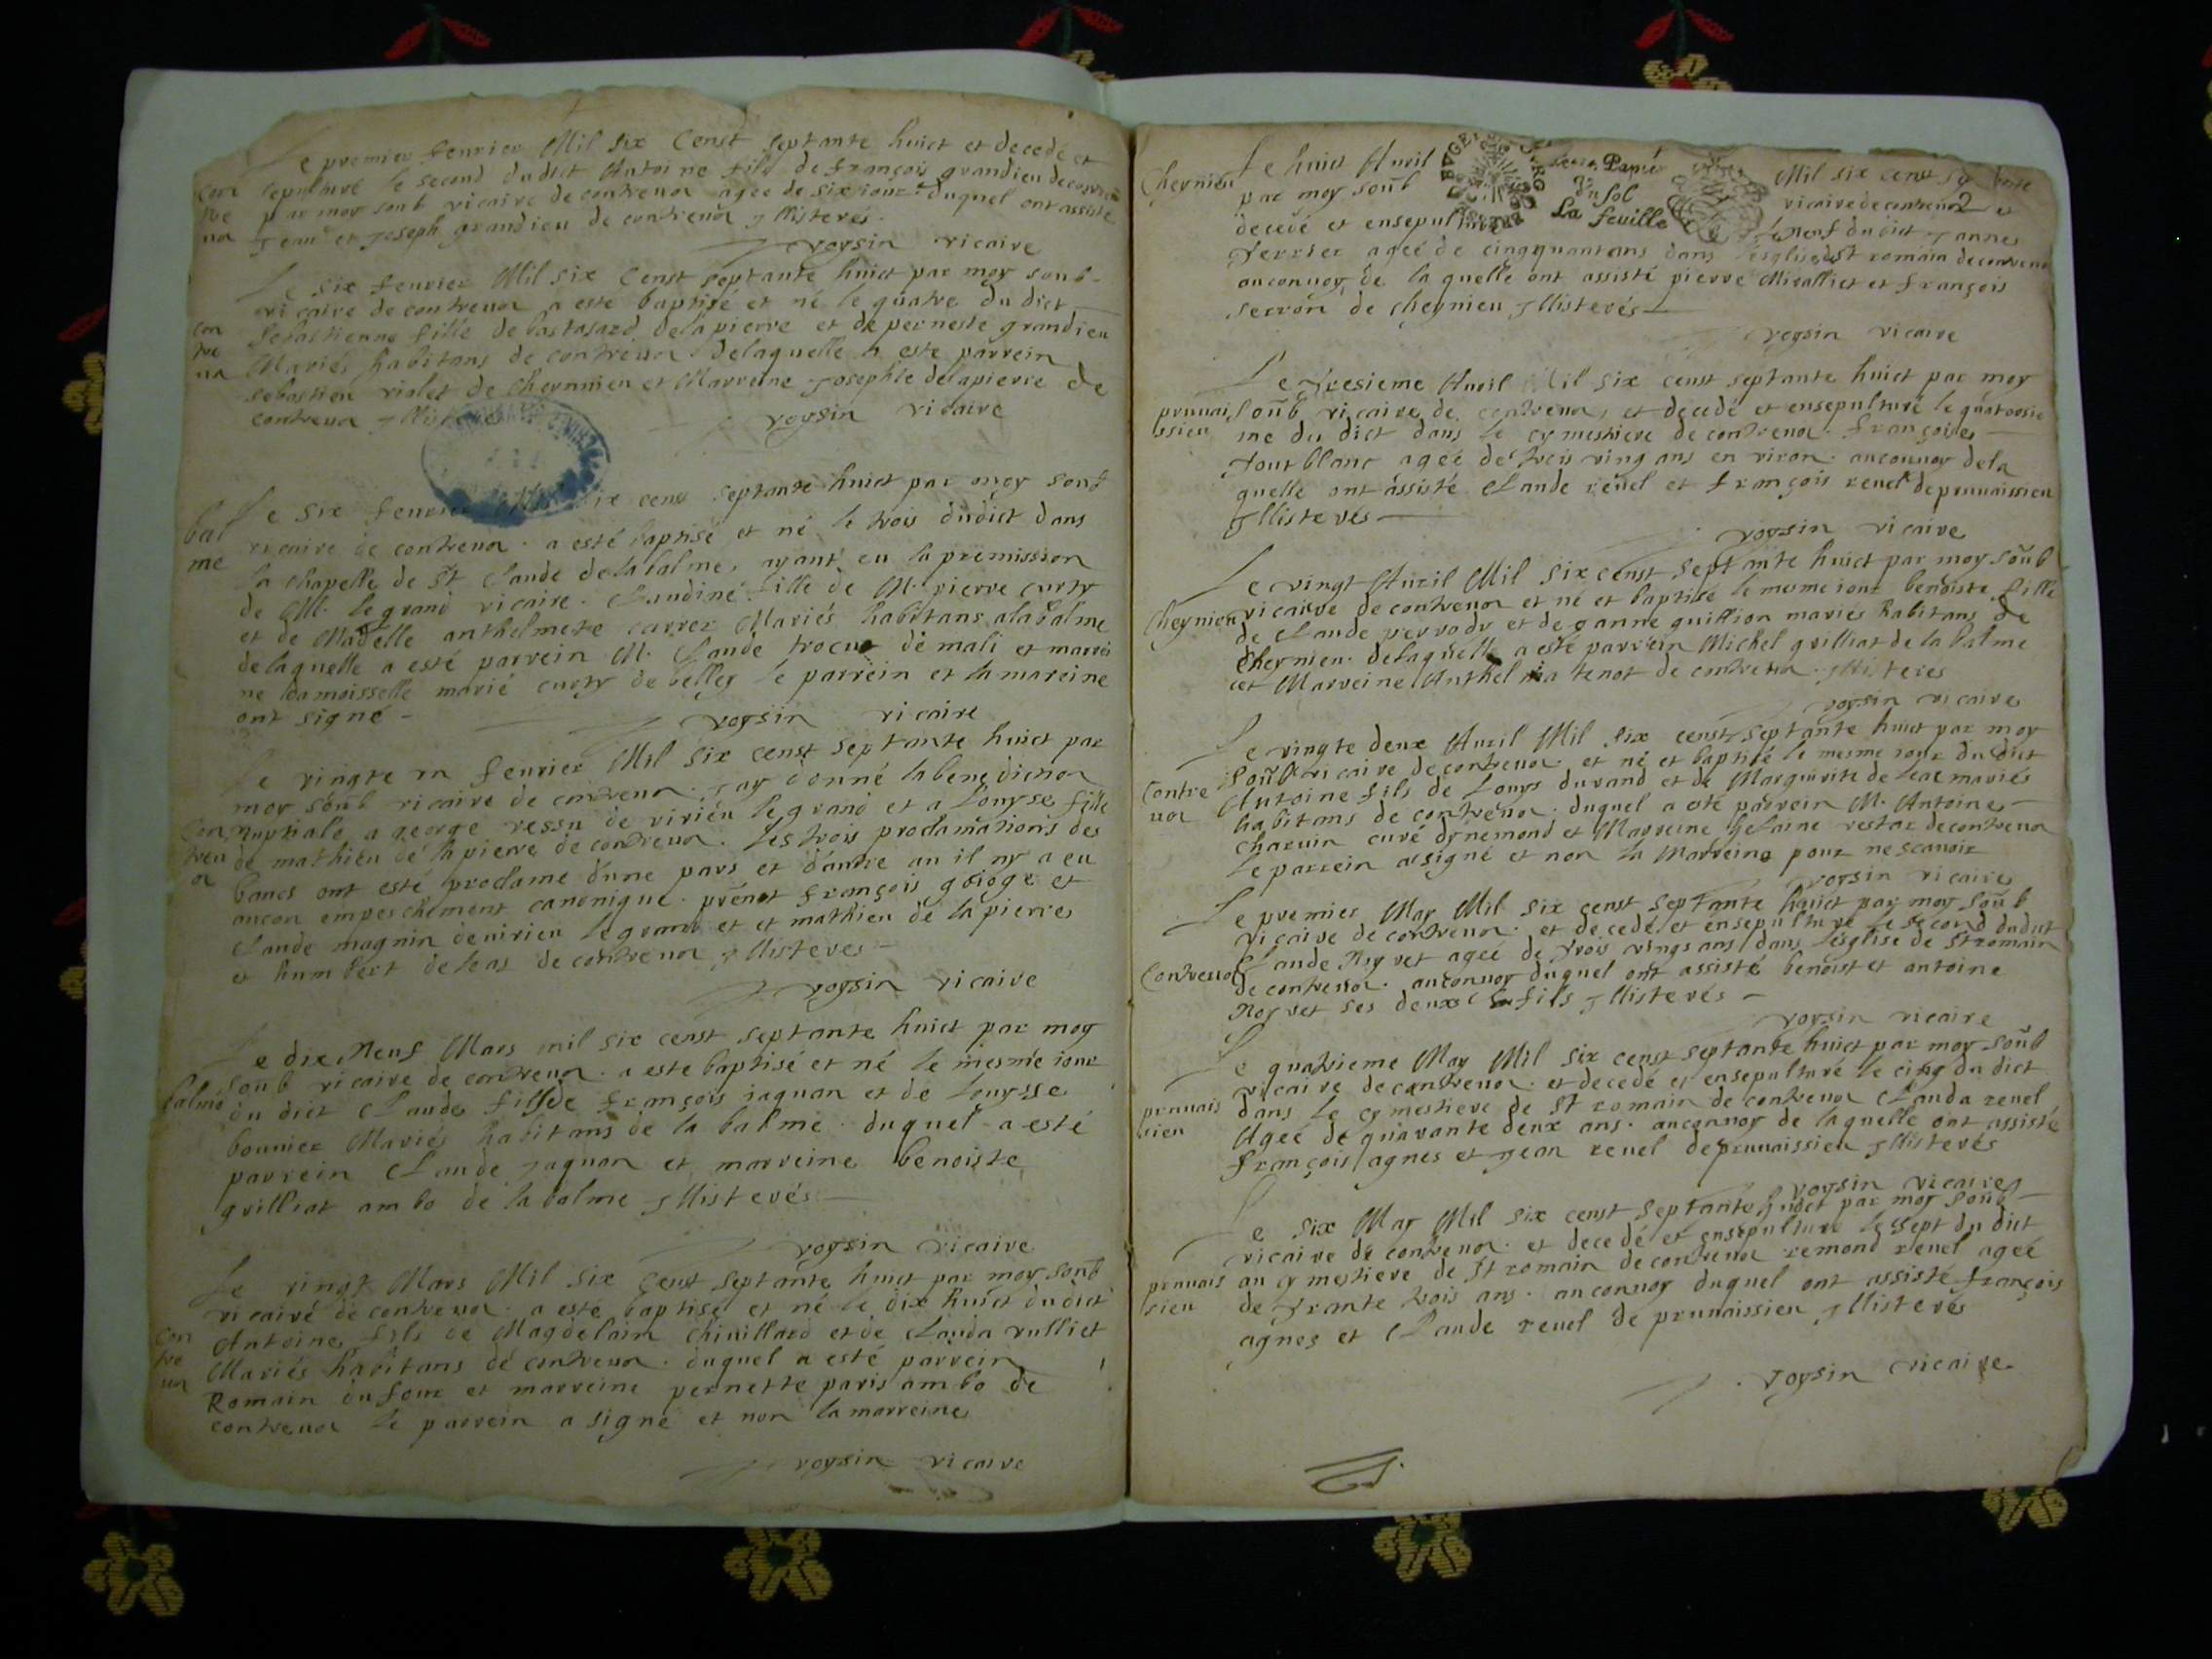 Le premier feurier Mil six Censt septante huict et decedé et
con sepulturé le second dudict Antoine fils de françois grandieu de contreuoz
tre par moy soub vicaire de contreuoz agee de six iour duquel ont assisté
uoz Jean et Joseph grandieu de contreuoz Illisterés
voysin vicaire
Le six feurier Mil six Censt septante huict par moy soub
vicaire de contreuoz a este baptisé et né le quatre du dict
con Sebastienne fille de bastasard delapierre et de perneste grandieu
tre Mariés habitans de contreuoz delaquelle a este parrein
uoz sebastien violet de cheynnieu et Marreine Josephte delapierre de
contreuoz Illisterés
voysin vicaire
Le six feurier Mil six cens septante huict par moy soub
bal vicaire de contreuoz a esté baptisé et né le trois dudict dans
me la chapelle de St Claude dela balme, ayant eu la premission
de M. le grand vicaire. Claudine fille de M. pierre curty
et de Madelle anthelmete carrez Mariés habitans a la balme
delaquelle a esté parrein M. Claude trocu de mali et marrei
ne damoisselle marié curty de belley le parrein et la mareine
ont signé
voysin vicaire
Le vingte vn feurier Mil six censt septante huict par
moy soub vicaire de contreuoz Jay donné la benediction
con nuptiale a george vessu de virieu le grand et a Louyse fille
treu de mathieu de lapierre de contreuoz. les trois proclamations des
oz bancs ont esté proclame d'une pars et dautre au il ny a eu
aucon empeschement canonique. prénet françois goioge et
Claude magnin de uirieu le grand et et mathieu de la pierre
et humbert de leas de contreuoz Illisteres
voysin vicaire
Le dix Neuf Mars mil six censt septante huict par moy
soub vicaire de contreuoz. a este baptisé et né le mesme iour
balme du dict Claude fils de françois iaquan et de Louysse
bouuier Mariés habitans de la balme. duquel a esté
parrein Claude Jaquan et marreine benoiste
guilliat ambo de la balme Illisterés
voysin vicaire
Le vingt Mars Mil six censt septante huict par moy soub
vicairé de contreuoz. a esté baptisé et né le dix huict dudict
con Antoine fils de Magdelain Chiuillard et de Clauda vulliet
tre Mariés habitans de contreuoz. duquel a esté parrein
uoz Romain dufour et marreine pernette paris ambo de
contreuoz le parrein a signé et non la marreine
voysin vicaire
Cheynieu Le huict Auril Mil six censt septante
par moy soub vicaire de contreuoz et
decedé et ensepulturé le neuf dudict Janne
Ferrier ageé de cinqquantans dans lesglise de St romain de contreuoz
auconuoy de la quelle ont assisté pierre Miralliet et françois
serron de cheynieu Illisterés
voysin vicaire
BVGEY
Vn sol
La feuille
Le tresieme Auril Mil six censt septante huict par moy
prunais soub vicaire de contreuoz, et decedé et ensepulturé le quatorsie
ssieu me du dict dans le cymestiere de contreuoz. françoise
tout blanc ageé de trois ving ans en viron. auconuoy dela
quelle ont assisté Claude reuel et françois reuel de prunaissieu
Illisterés
voysin vicaire
Le vingt Auril Mil six censt septante huict par moy soub
Cheynieu vicaire de contreuoz et né et baptisé le mesme iour benoiste fille
de Claude perrody et de ganne guillion mariés habitans de
Cheynieu. delaquelle a este parrein Michel guilliat de la balme
et Marreine Anthelma tenot de contreuoz. Illisterés
voysin vicaire
Le vingte deux Auril Mil six censt septante huict par moy
soub vicaire de contreuoz. et né et baptisé le mesme iour du dict
Contre Antoine fils de Louys durand et de Marguirite de leas mariés
uoz habitans de contreuoz. duquel a esté parrein M. Antoine
charuin curé dynemond et Marreine helaine restaz de contreuoz
le parrein a signé et non la Marreine pour ne scauoir
voysin vicaire
Le premier May Mil six censt septante huict par moy soub
vicaire de contreuoz. et decedé et ensepulturé le second dudict
Contreuoz Claude Noyret ageé de trois vings ans dans lesglise de St romain
de contreuoz. auconuoy duquel ont assisté benoist et antoine
Noyret ses deux fils Illisterés
voysin vicaire
Le quatrieme May Mil six censt septante huict par moy soub
vicaire de contreuoz. et decedé et ensepulturé le cinq du dict
prunais dans le cymestiere de St romain de contreuoz Clauda reuel
sieu Ageé de quarante deux ans. auconuoy de laquelle ont assisté
françois agnes et Jean reuel de prunaissieu Illisterés
voysin vicaire
Le six May Mil six censt septante huict par moy soub
vicaire de contreuoz. et decedé et ensepulturé le sept du dict
prunais au cymestiere de St romain de contreuoz remond reuel ageé
sieu de trante trois ans. auconuoy duquel ont assisté françois
agnes et Claude reuel de prunaissieu Illisterés
voysin vicaire